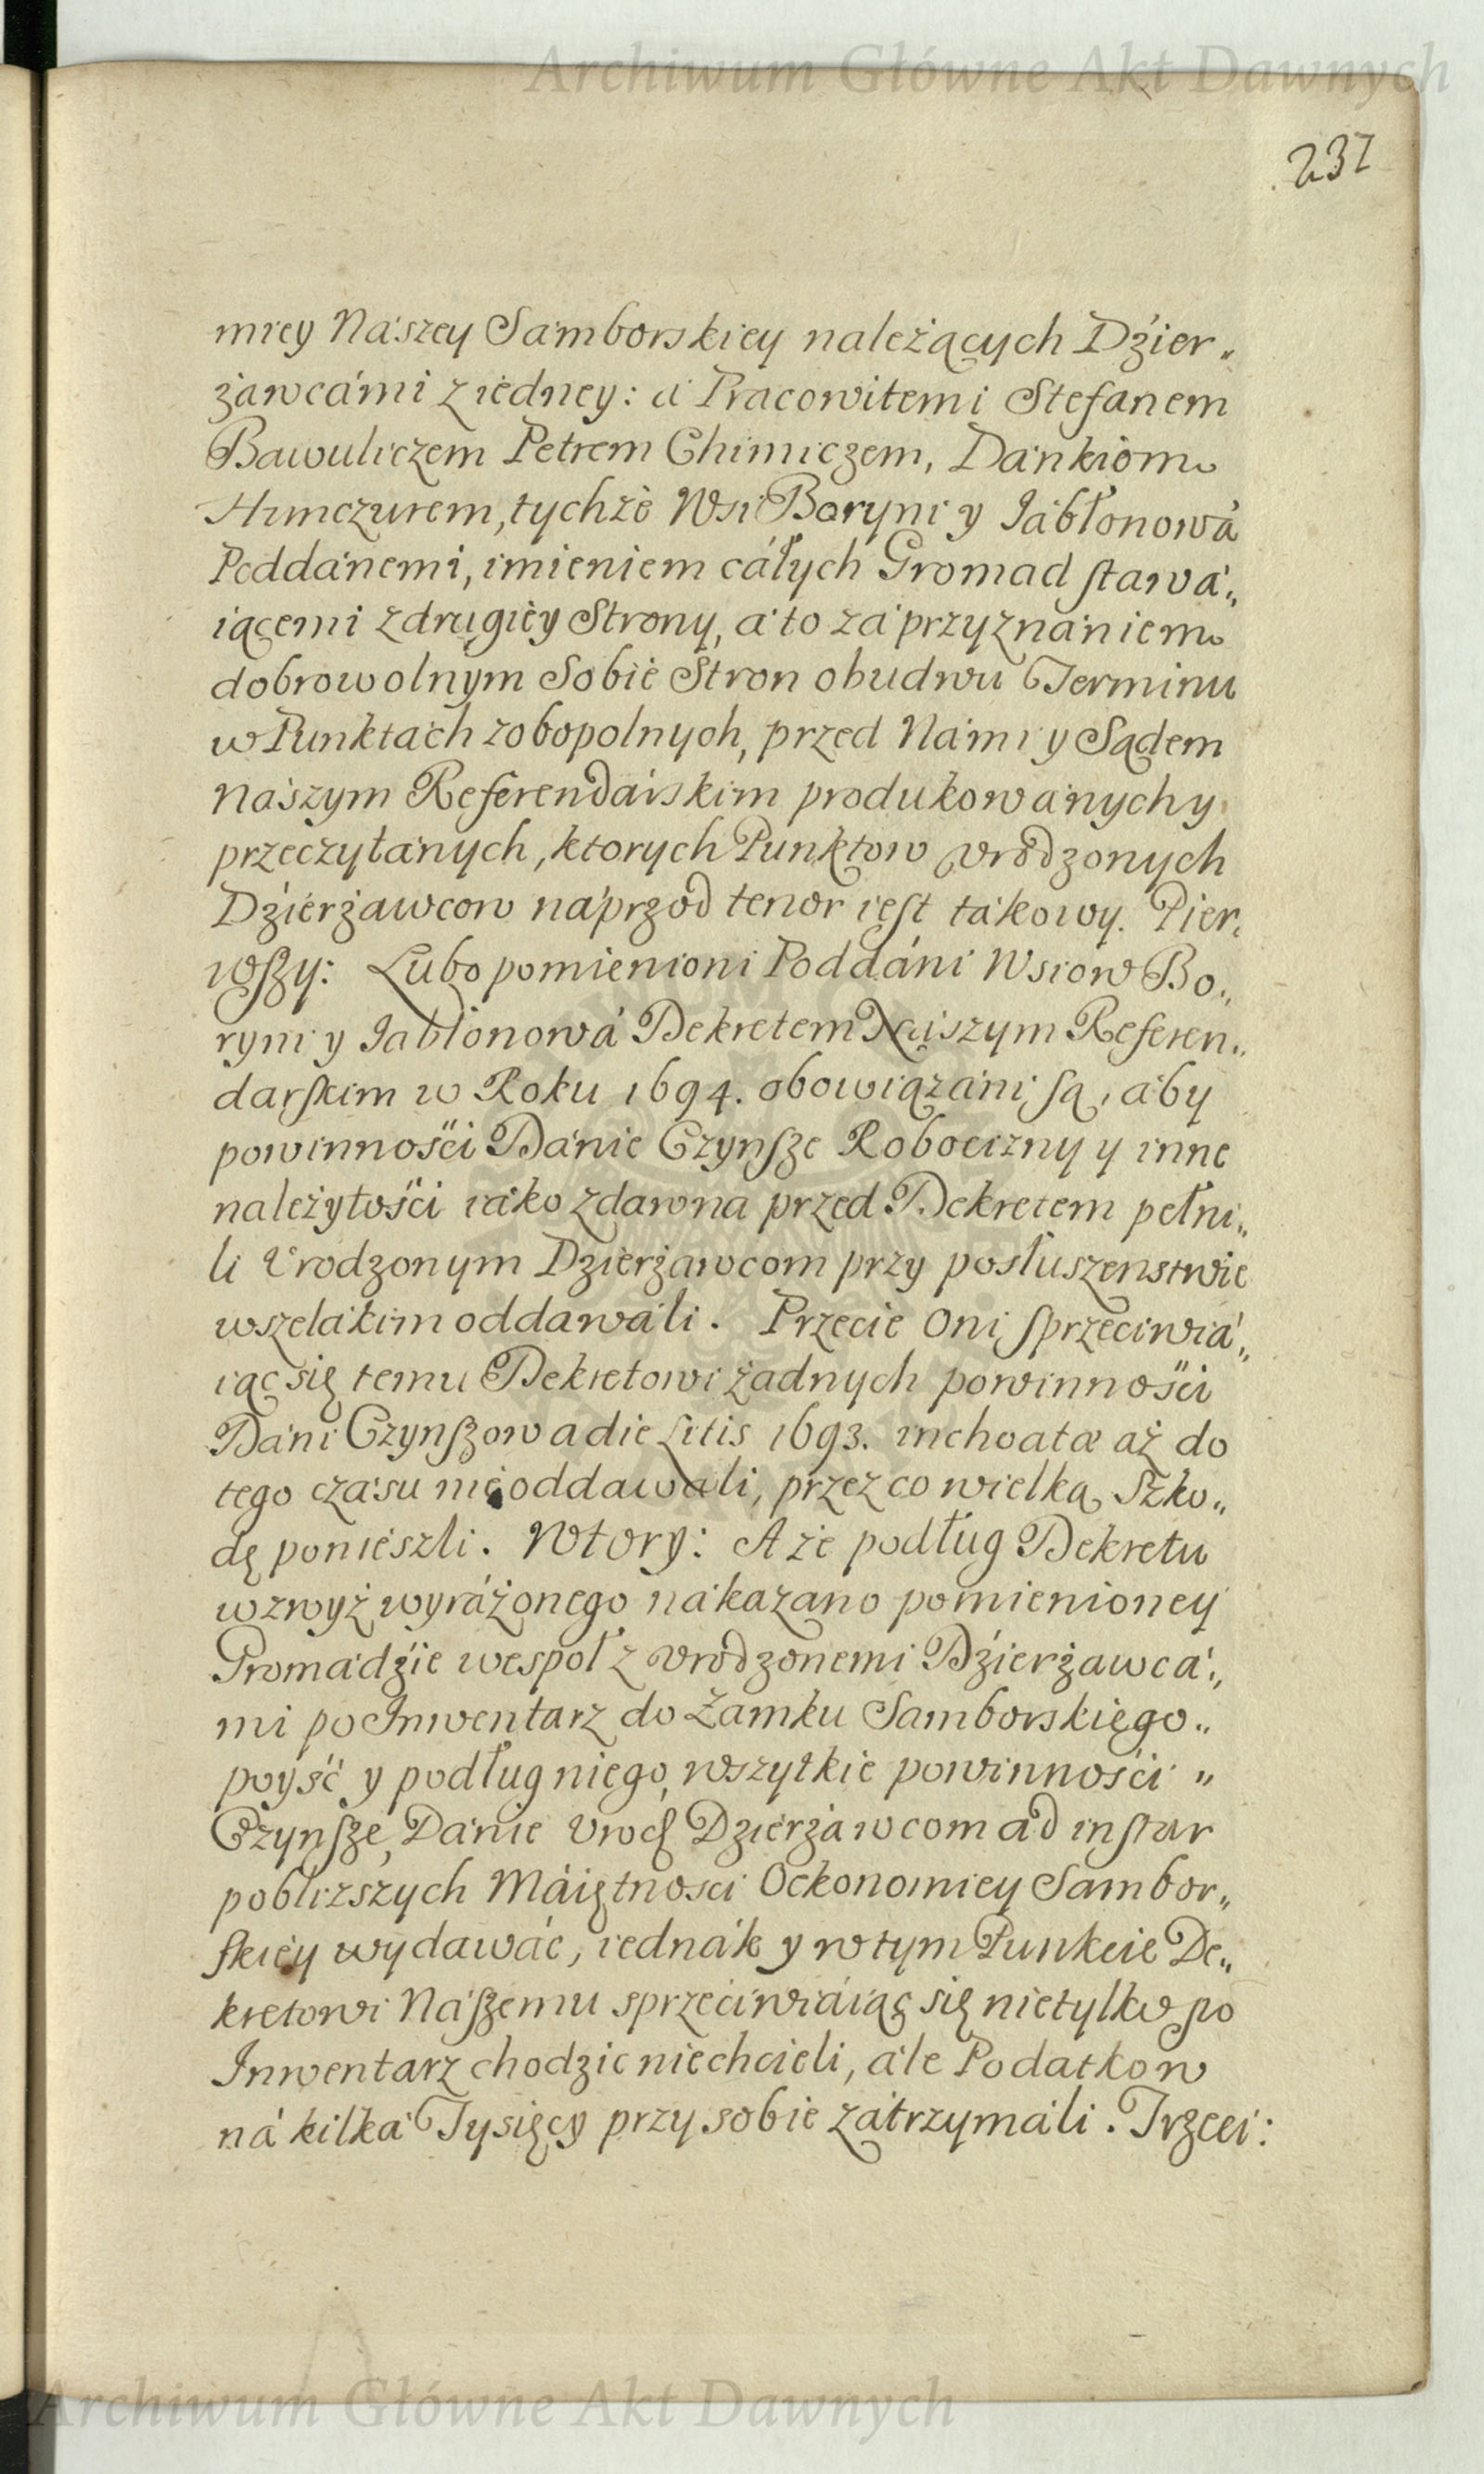 Archiwum Główne Akt Dawnych
237
miey Nászey Sámborskiey należących Dźier„
żawcámi z iedney: á Pracowitemi Stefanem
Bawuliczem Petrem Chimiczem, Dánkiem
Hunczurem, tychże Wsi Boryni y Jábłonowá
Poddánemi, imieniem cáłych Gromad stawá„
iącemi z drugiey Strony, á to zá przyznániem
dobrowolnym Sobie Stron obudwu Terminu
w Punktách zobopolnych, przed Námi y Sądem
Nászym Referendárskim produkowánych y
przeczytánych, ktorych Punktow vrodzonych
Dźierżawcow náprzod tenor iest tákowy. Pier„
wszy: Lubo pomienioni Poddáni Wsiow Bo„
ryni y Jabłonowá Dekretem Nászym Referen„
darskim w Roku 1694. obowiązáni są, áby
powinności Dánie Czynsze Robocizny y inne
należytości iáko zdawna przed Dekretem pełni„
li Vrodzonym Dzierżawcom przy posłuszenstwie
wszelákim oddawáli. Przecie Oni sprzeciwiá„
iąc się temu Dekretowi żadnych powinności
Dáni Czynszow a die Litis 1693. inchoatæ aż do
tego czásu nie oddawali, przez co wielką Szko„
dę ponieszli. Wtory: A że podług Dekretu
wzwyż wyráżonego nákazano pomienioney
Gromádźie wespoł z vrodzonemi Dźierżawcá„
mi po Inwentarz do Zamku Samborskiego„
poyść y podług niego, wszytkie powinności „
Czynsze, Dánie Vrod Dzierżáwcom ad instar
pobliższych Máiętnosci Oekonomiey Sambor„
skiey wydawáć, iednák y w tym Punkcie De„
kretowi Nászemu sprzeciwiáiąc się nie tylko po
Inwentarz chodzic niechcieli, ále Podatkow
ná kilká Tysięcy przy sobie zátrzymáli. Trzeci:
Archiwum Główne Akt Dawnych